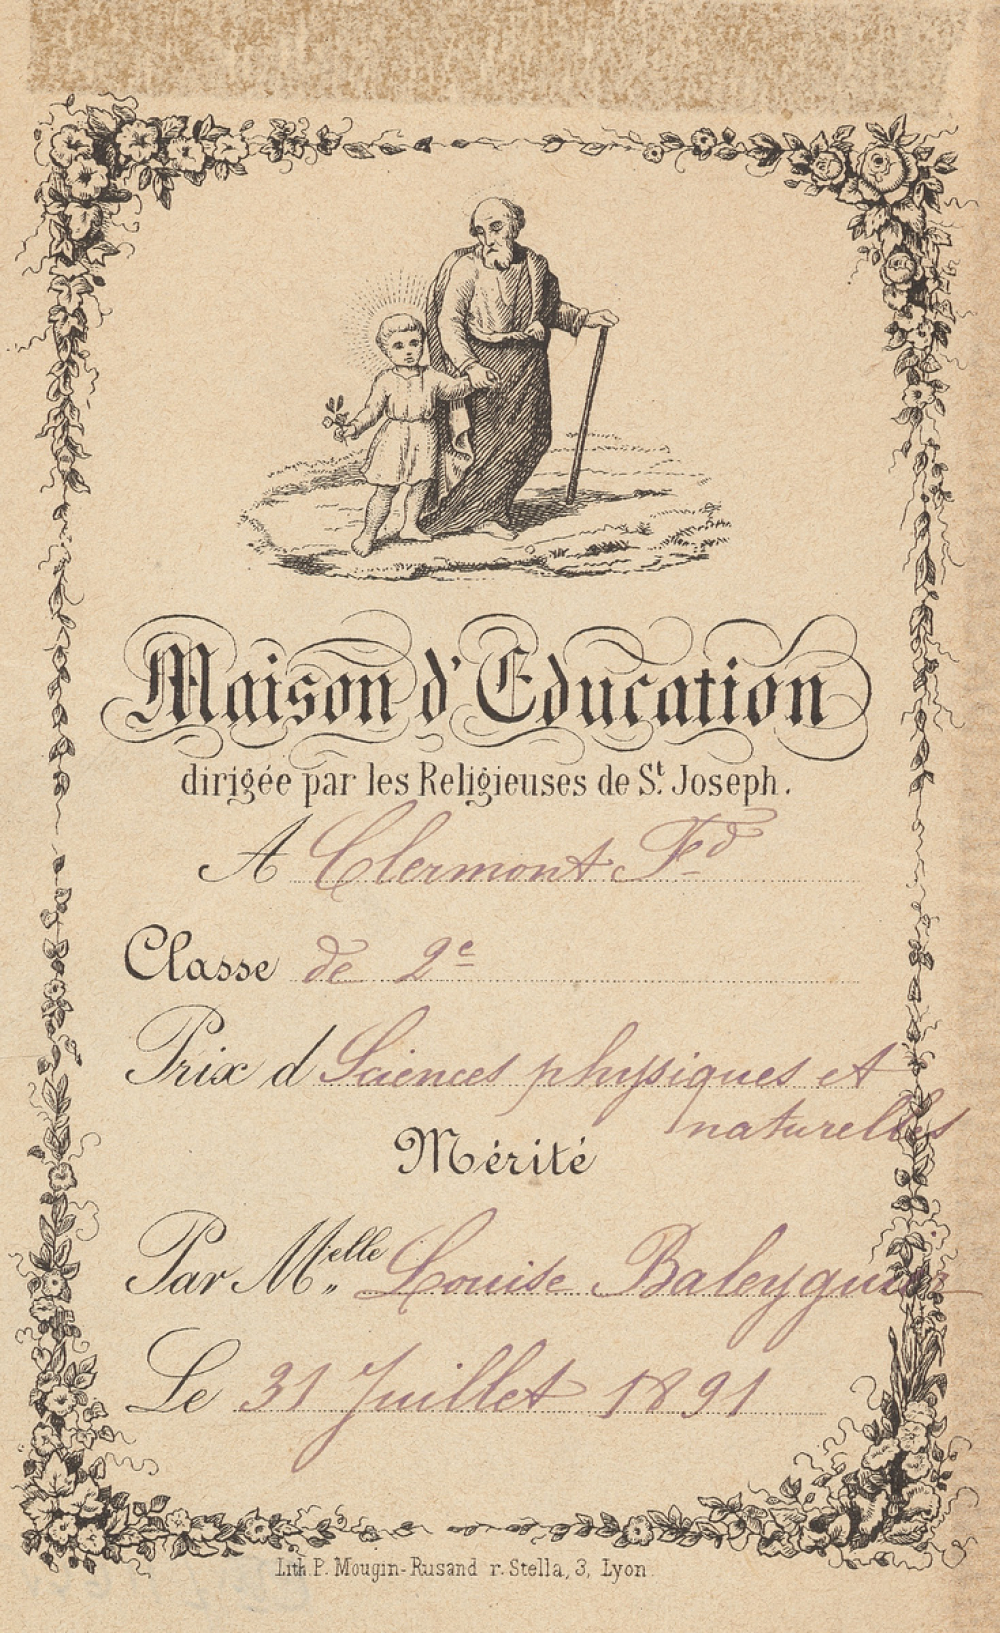 Maison d'Education
dirigée par les Religieuses de St. Joseph.
A Clermont Fd
Classe de 2e
Prix d Sciences physiques et
naturelles
Mérité
Par Melle Louise Baleyguier
Le 31 Juillet 1891
Lith. P. Mougin-Rusand r. Stella, 3, Lyon